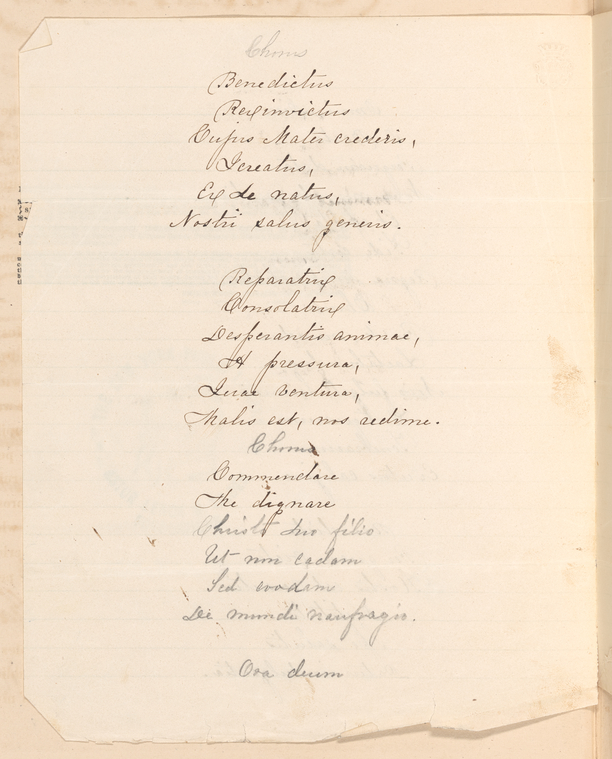 Chorus
Benedictus
Rex invictus
Cujus Mater crederis,
Increatus,
Ex te natus,
Nostri salus generis.
Reparatrix
Consolatrix
Desperantis animae,
A pressura,
Quae ventura,
Malis est, nos redime.
Chorus
Commendare
Me dignare
Christo tuo filio
Ut non cadam
Sed evadam
De mundi naufragio.
Ora deum